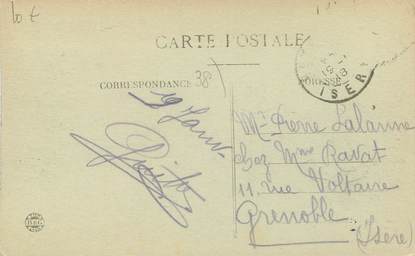 10 €
CARTE POSTALE
CORRESPONDANCE
38
ADRESSE
ISERE
29 Janv.
Mr Pierre Lalanne
chez Mme Ravat
11 rue Voltaire
Grenoble
(Isère)
B&G